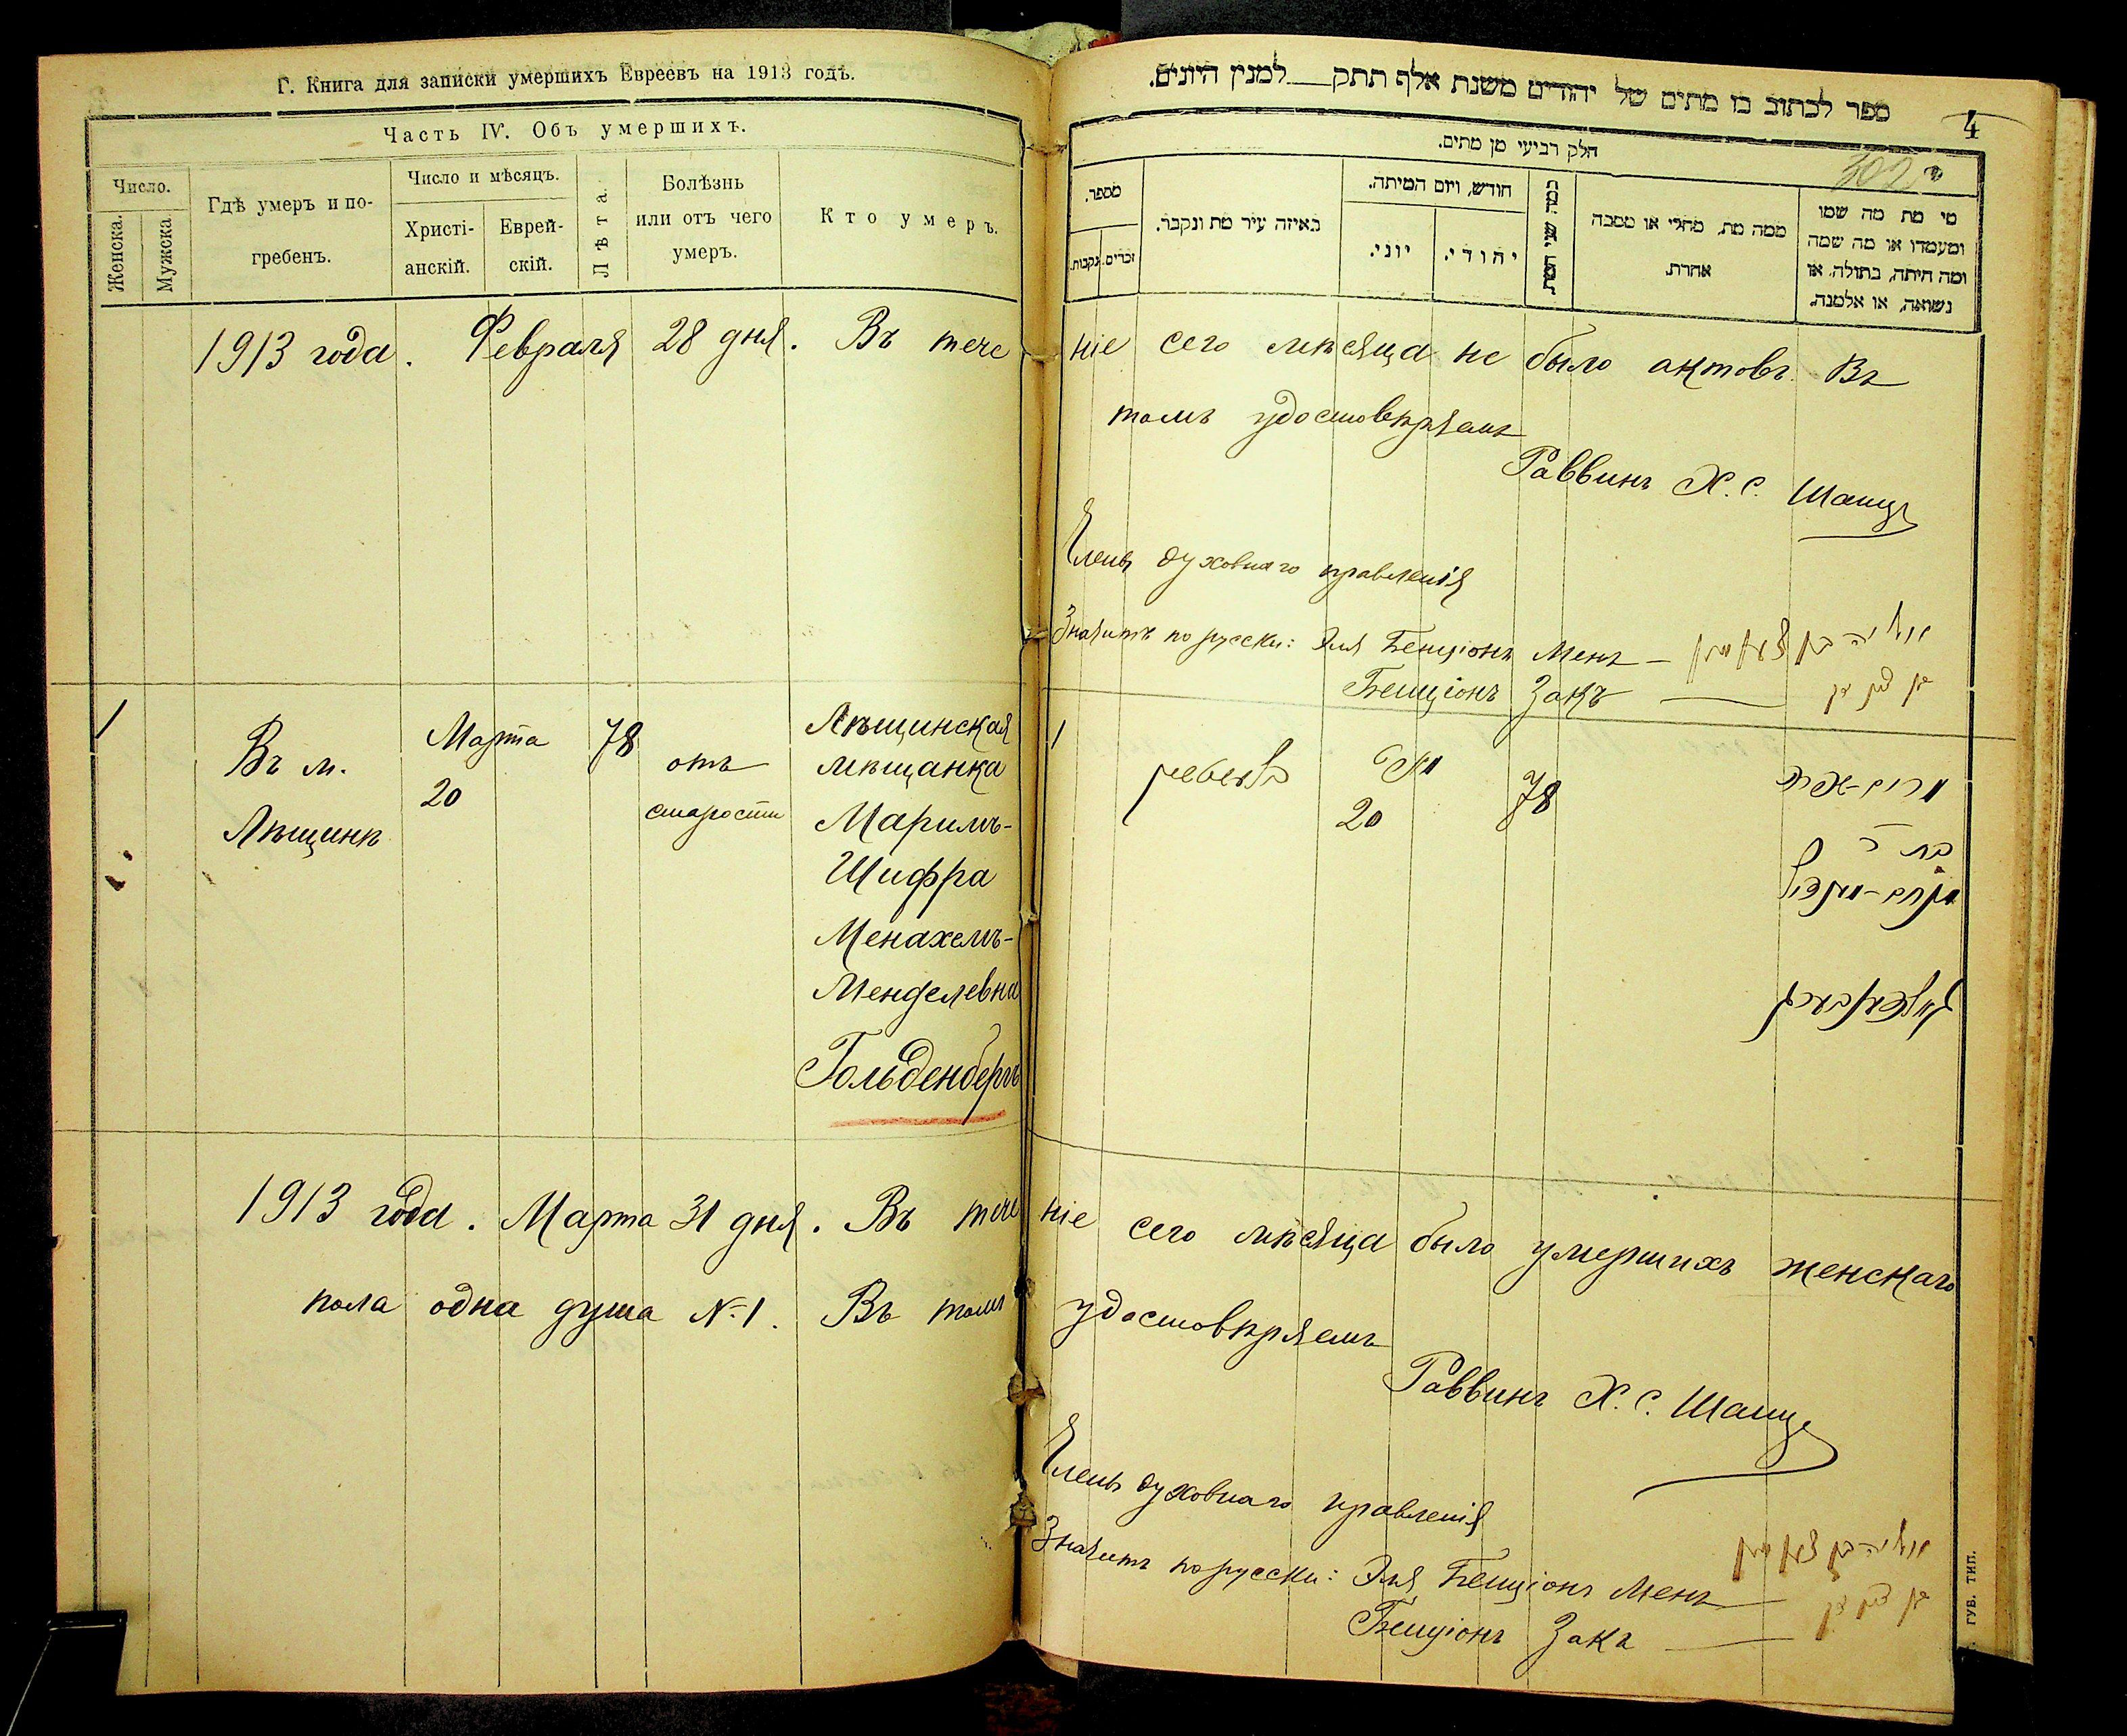 Г. Книга для записки умершихъ Евреевъ на 1913 годъ.
Часть IV. Объ умершихъ.
Число.
Женска.
Мужска.
Гдѣ умеръ и по-
гребенъ.
Число и мѣсяцъ.
Христі-
анскій.
Еврей-
скій.
Лѣта.
Болѣзнь
или отъ чего
умеръ.
Кто умеръ.
1913 года. Февраля 28 дня. Въ тече
1
Въ м.
Лѣщинѣ
Марта
20
78
отъ
старости
Лѣщинская
мѣщанка
Маримъ-
Шифра
Менахемъ-
Менделевна
Гольденбергъ
1913 года. Марта 31 дня. Въ тече
пола одна душа №1. Въ томъ
ספר לכתוב בו מתים של יהודים משנת אלף תתק למנין היונים.
4
302
חלק רביעי מן מתים.
מספר.
זכרים.
נקבות.
באיזה עיר מת ונקבר.
חודש, ויום המיתה.
יוני.
יהודי.
כמה שני המת
ממה מת, מחלי או מסבה
אחרת.
מי מת מה שמו
ומעמדו או מה שמה
ומה היתה, בתולה, או
נשואה, או אלמנה.
ніе сего мѣсяца не было актовъ. Въ
томъ удостовѣряемъ
Раввинъ Х. С. Шапиро
Членъ духовнаго правленія
Значитъ по русски: Эля Бенціонъ Менъ
Бенціонъ Закъ
1
20
78
בת ר'
ніе сего мѣсяца было умершихъ женскаго
удостовѣряемъ
Раввинъ Х. С. Шапиро
Членъ духовнаго правленія
Значитъ по русски: Эля Бенціонъ Менъ
Бенціонъ Закъ
ГУБ. ТИП.